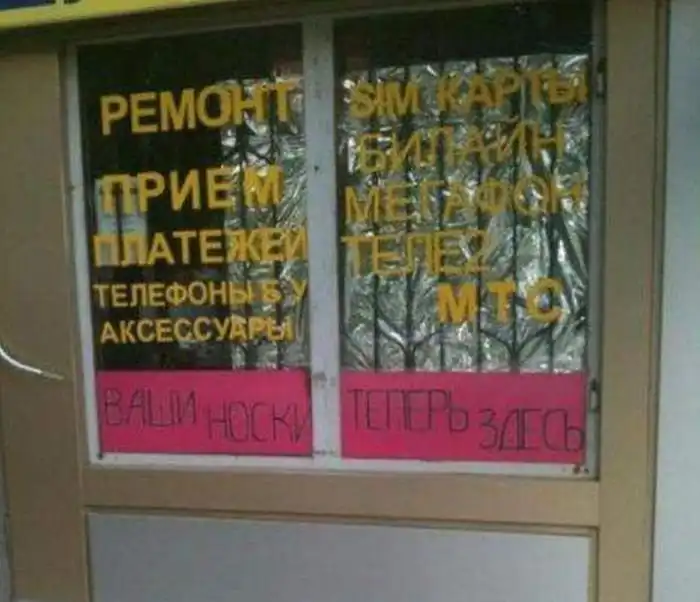 РЕМОНТ
ПРИЕМ
ПЛАТЕЖЕЙ
ТЕЛЕФОНЫ Б У
АКСЕССУАРЫ
ВАШИ НОСКИ
SIM КАРТЫ
БИЛАЙН
МЕГАФОН
ТЕЛЕ2
МТС
ТЕПЕРЬ ЗДЕСЬ